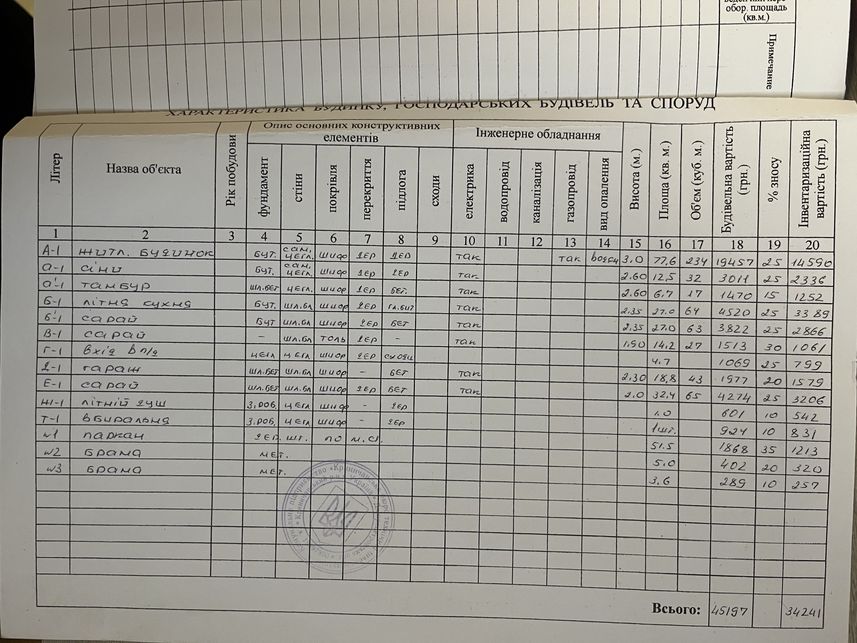 обор. площадь
(кв.м.)
Примечание
ХАРАКТЕРИСТИКА БУДИНКУ, ГОСПОДАРСЬКИХ БУДІВЕЛЬ ТА СПОРУД
Літер Назва об'єкта Рік побудови Опис основних конструктивних елементів Інженерне обладнання Висота (м.) Площа (кв. м.) Об'єм (куб. м.) Будівельна вартість (грн.) % зносу Інвентаризаційна вартість (грн.)
фундамент стіни покрівля перекриття підлога сходи електрика водопровід каналізація газопровід вид опалення
1 2 3 4 5 6 7 8 9 10 11 12 13 14 15 16 17 18 19 20
А-1 житл. будинок бут. сам, цегл. шиф дер дер так так 3.0 77,6 234 19457 25 14590
а-1 сіни бут. сам, цегл. шиф дер дер так 2.60 12,5 32 3011 25 2336
а'-1 тамбур шл.бет цегл. шиф дер бет так 2.60 6.7 17 1470 15 1252
Б-1 літня кухня бут. шл.бл шиф дер так 2.35 27.0 64 4520 25 3389
б-1 сарай бут шл.бл шиф дер бет так 2.35 27.0 63 3822 25 2866
В-1 сарай – шл.бл толь дер – так 1.90 14.2 27 1513 30 1061
Г-1 вхід в п/д цегл цегл шиф дер сходи 4.7 1069 25 799
Д-1 гараж шл.бет шл.бл шиф – бет так 2.30 18,8 43 1977 20 1579
Е-1 сарай шл.бет шл.бл шиф дер бет так 2.0 32.4 65 4274 25 3206
Ж-1 літній душ з.роб. цегл шиф – дер 1.0 601 10 542
Т-1 вбиральня з.роб. цегл шиф – дер 1шт. 924 10 831
№1 паркан дер. шт. по м.сі. 51.5 1868 35 1213
№2 брама мет. 5.0 402 20 320
№3 брама мет. 3.6 289 10 257
Всього: 45197 34241